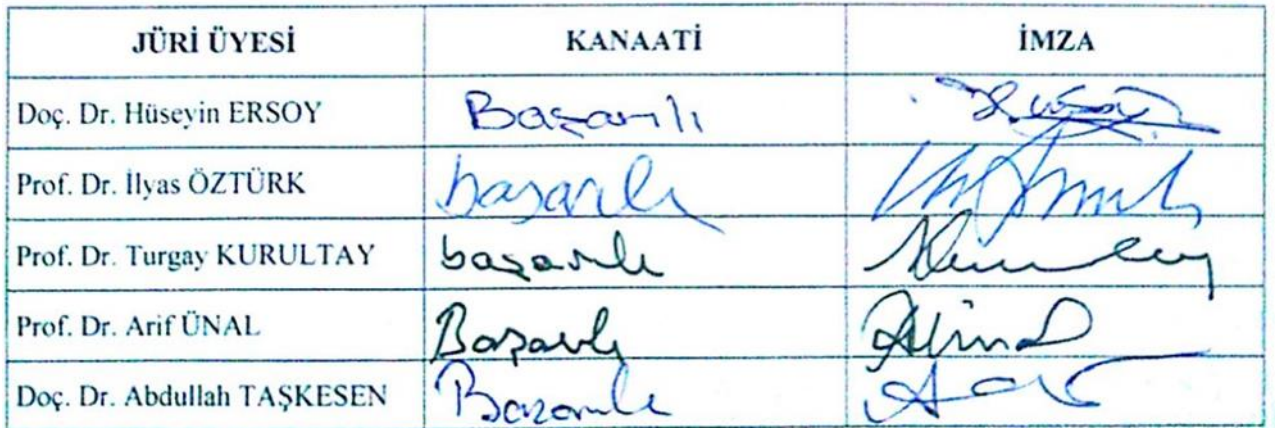 JÜRİ ÜYESİ KANAATİ İMZA
Doç. Dr. Hüseyin ERSOY Başarılı
Prof. Dr. İlyas ÖZTÜRK başarılı
Prof. Dr. Turgay KURULTAY başarılı
Prof. Dr. Arif ÜNAL Başarılı
Doç. Dr. Abdullah TAŞKESEN Başarılı